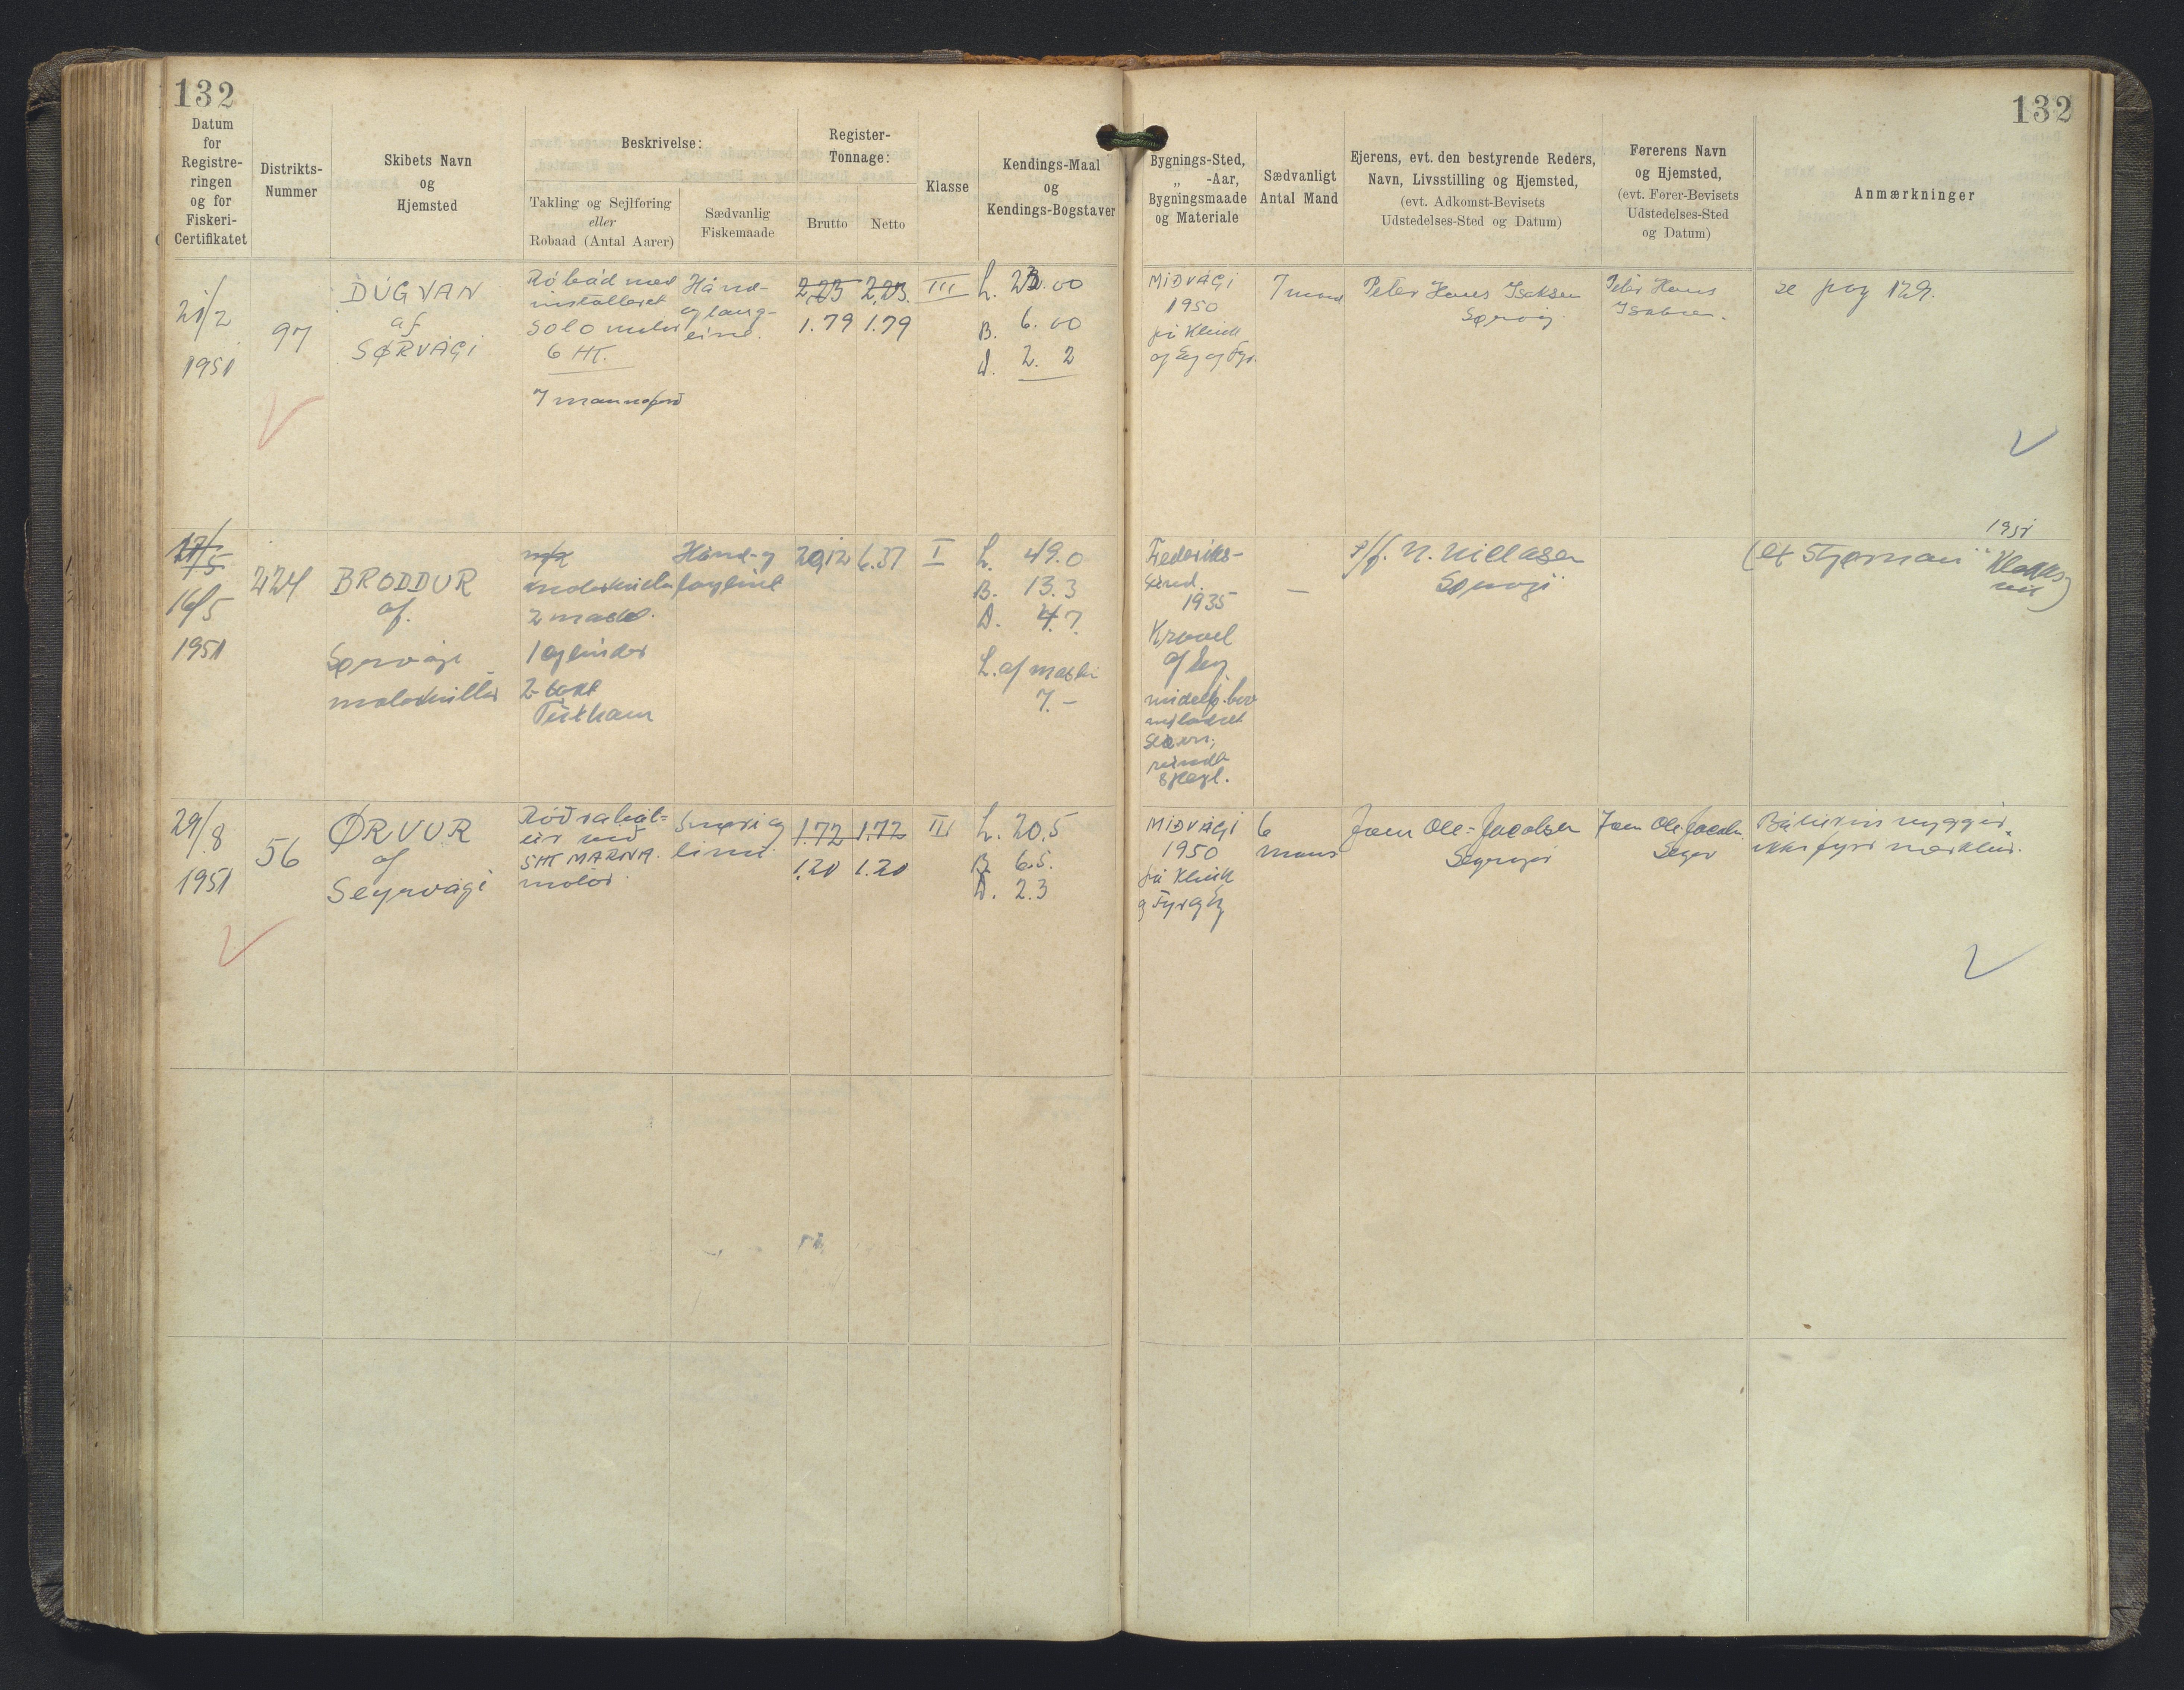 132
132
Datum
for
Registre-
ringen
og for
Fiskeri-
Certifikatet
Distrikts-
Nummer
Skibets Navn
og
Hjemsted
Beskrivelse:
Takling og Sejlføring
eller
Robaad (Antal Aarer)
Sædvanlig
Fiskemaade
Register-
Tonnage:
Brutto
Netto
Klasse
Kendings-Maal
og
Kendings-Bogstaver
Bygnings-Sted,
„ -Aar,
Bygningsmaade
og Materiale
Sædvanligt
Antal Mand
Ejerens, evt. den bestyrende Reders,
Navn, Livsstilling og Hjemsted,
(evt. Adkomst-Bevisets
Udstedelses-Sted og Datum)
Førerens Navn
og Hjemsted,
(evt. Fører-Bevisets
Udstedelses-Sted
og Datum)
Anmærkninger
21/2
1951
97
DÚGVAN
af
SØRVÁGI
Róbád med
installeret
Solo motor
6 HK.
7 mannafar
Hánd-
og lang-
line.
2,23 2,23
1.79 1.79
III
L. 23.00
B. 6.00
D. 2. 2
MIÐVÁGI
1950
på Klink
af Eg og Fyr.
7 mand
Peter Hans Isaksen
Sørvág
Peter Hans
Isaksen.
se pag 129.
17/5
16/5
1951
224
BRODDUR
af
Sørvági
motorkutter
m/k
motorkutter
2 mastet.
1 cylinder
2-takt
Tuxham
Hánd- og
langline
20,12
6.37
I
L. 49.0
B. 13.3
D. 4.7
L. af maskin
7.-
Frederiks-
sund.
1935
Kravel
af Eg
1951
S/f. N. Niclasen
Sørvági
(ex Stjørnan" Klakks-
vík)
29/8
1951
56
ØRVUR
af
Seyrvági
við
5 HK MARNA
motor.
Snøri og
línu.
1.72 1.72
1.20 1.20
III
L. 20.5
B. 6.5.
D. 2.3
MIÐVÁGI
1950
på Klink
og Fyr og Eg
6
mans
Joen Ole-Jacobsen
Seyrvági
Joen Ole Jacobs.
Báturin nyggjur,
ikki fyrr merktur.